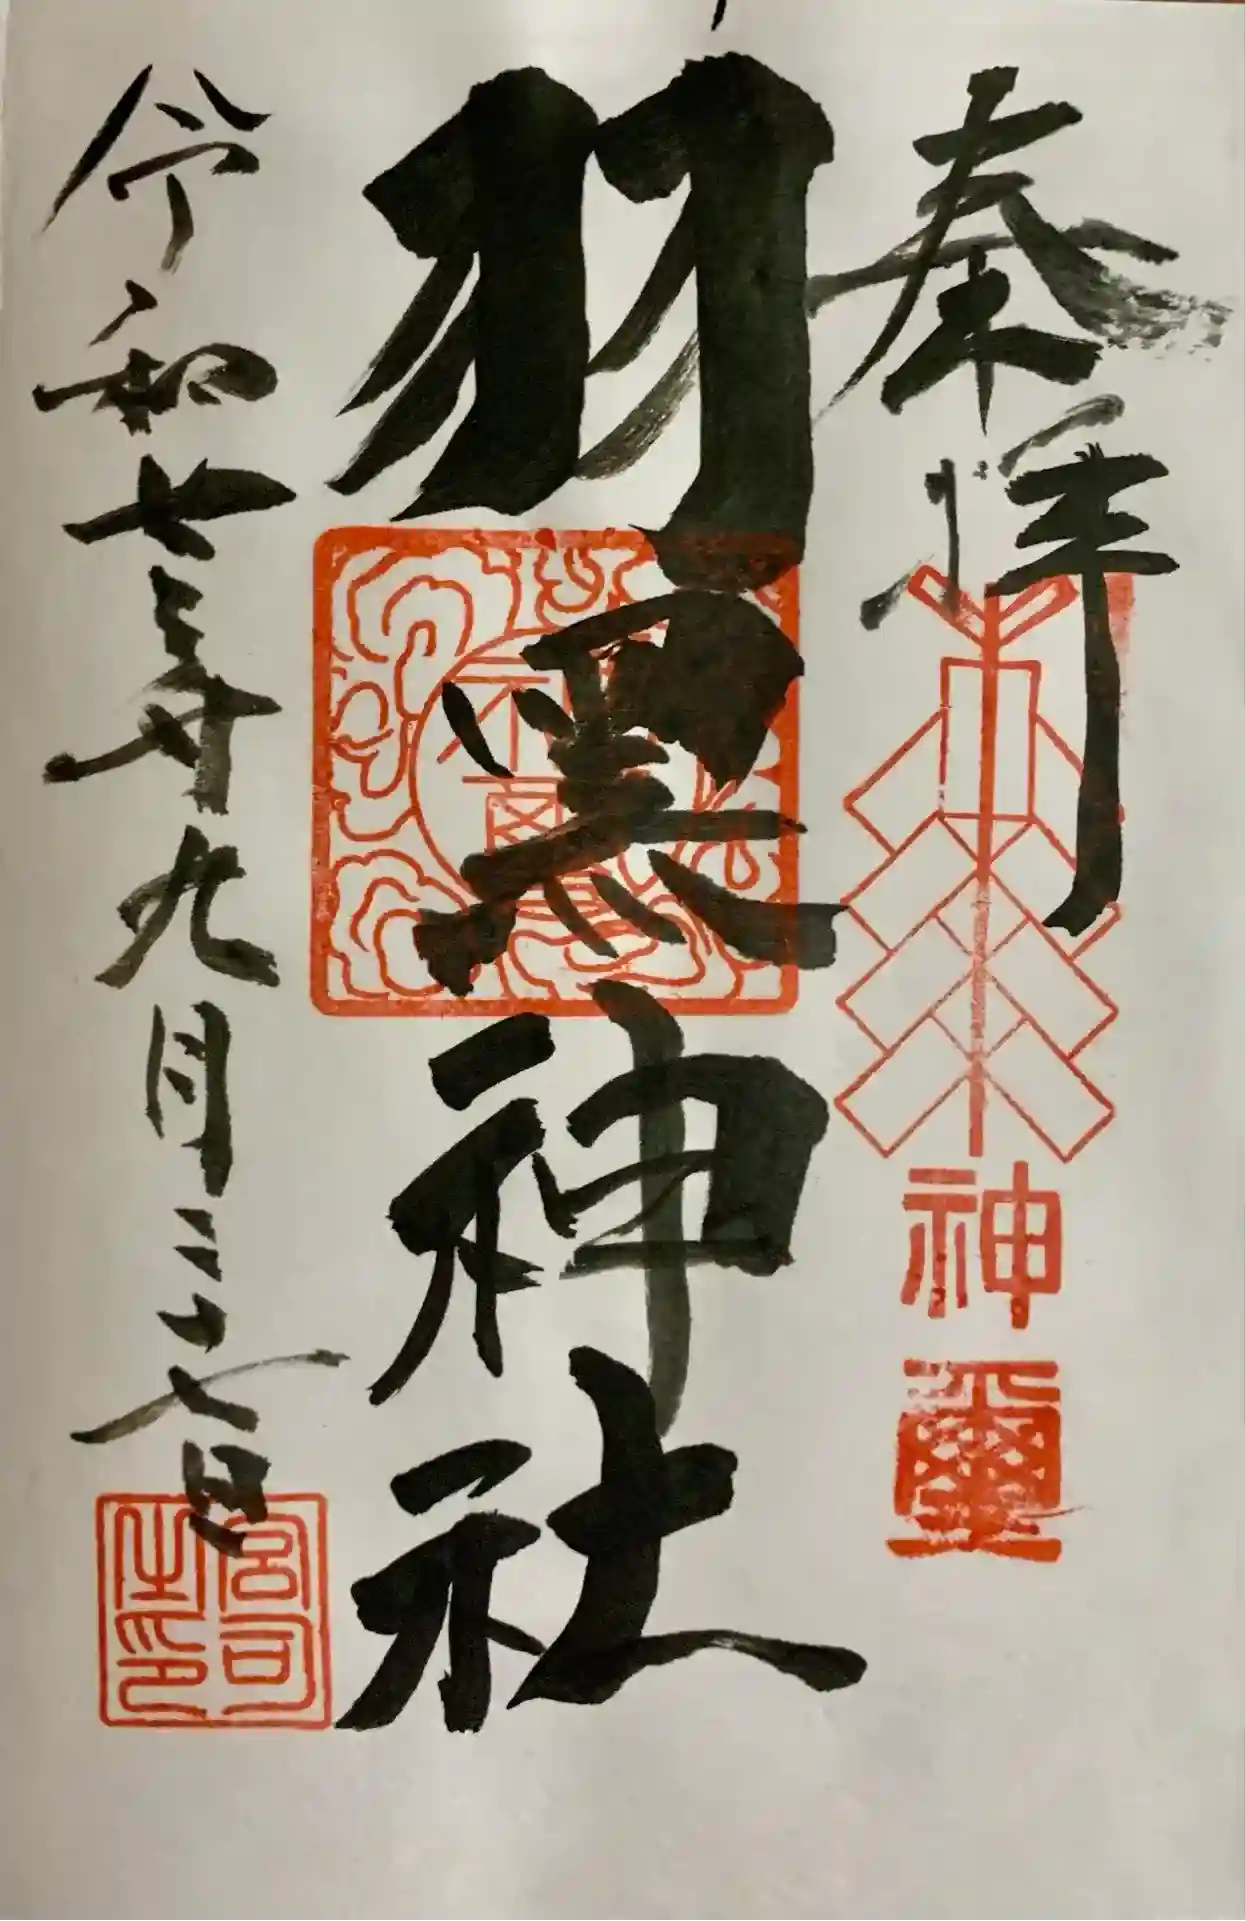 奉拝
神璽
羽黒神社
令和七年九月二十七日
宮司
之印